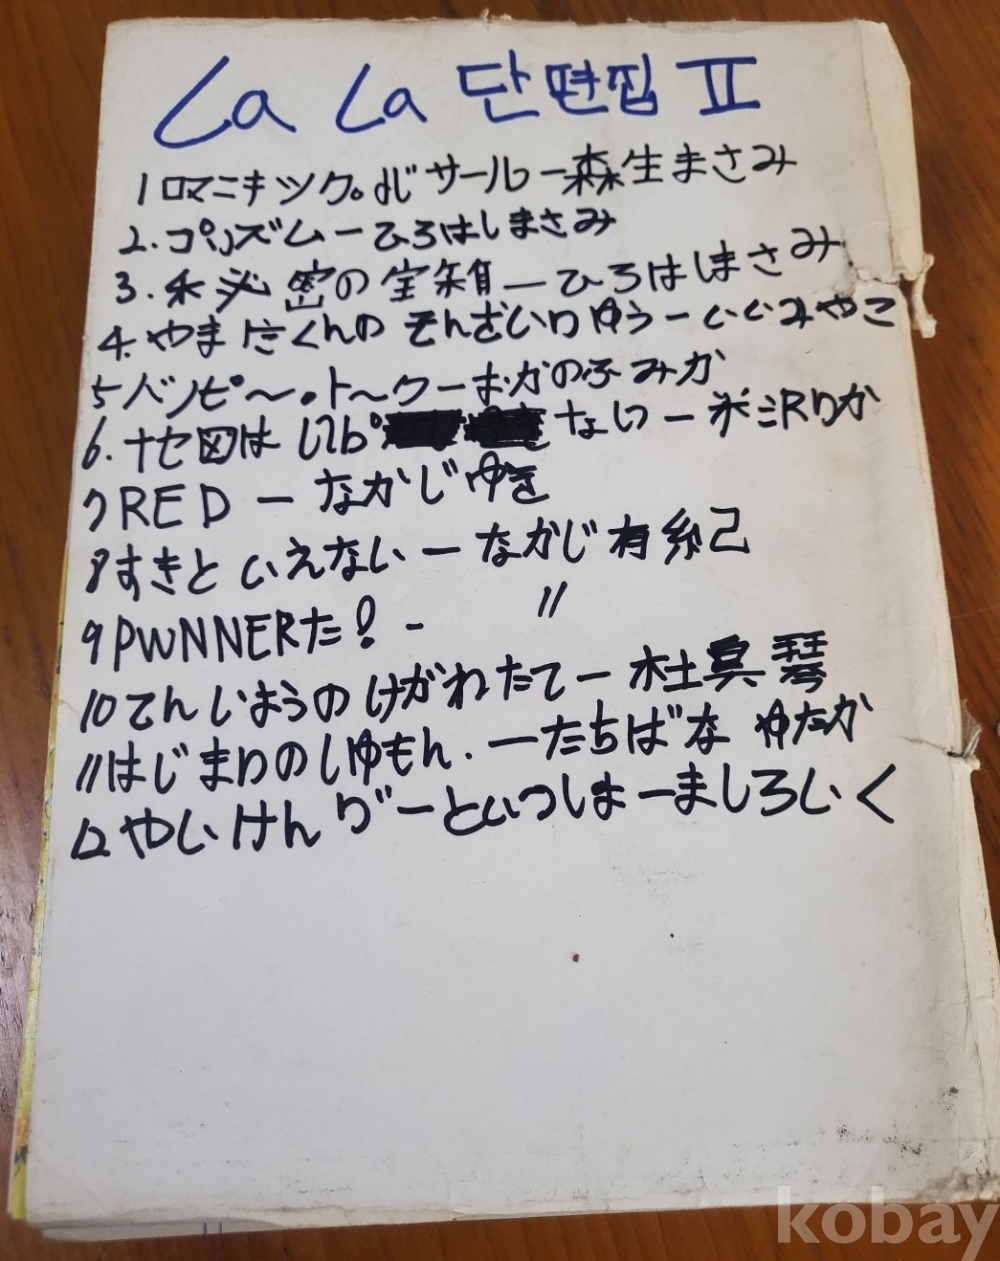 La La 단편집 Ⅱ
1 ロマニキツク。 サールー森生まさみ
2. プリズムーひろはしまさみ
3. 秘密の宝箱ーひろはしまさみ
4. やまだくんのそんざいりゆうーいぐみやこ
5 バンピ〜。ト〜クーおがのふみか
6. 地図は ないー米沢りか
7 RED ー なかじゆき
8 すきといえない ー なかじ有紀
9 PWNNERた! - 〃
10 てんじようのけがわたてー杜真琴
11 はじまりのしゆもん. ーたちばな ゆたか
12 やいけん ーといつしよーましろいく
kobay